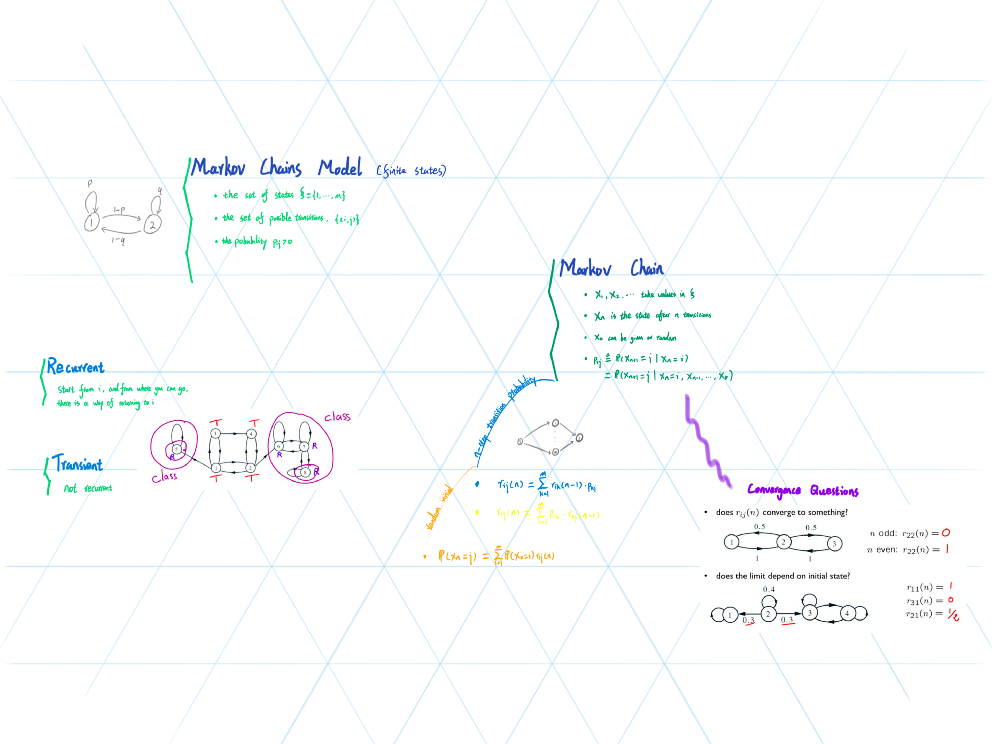 Markov Chains Model (finite states)
• the set of states ξ = {1, ..., m}
• the set of possible transitions. {(i,j)}
• the probability pij > 0
p
q
1-p
1
2
1-q
Markov Chain
• X1, X2, ... take values in ξ
• Xn is the state after n transitions
• X0 can be given or random
• pij ≜ P(Xn+1 = j | Xn = i)
= P(Xn+1 = j | Xn = i, Xn-1, ..., X0)
Recurrent
Start from i, and from where you can go,
there is a way of returning to i
Transient
not recurrent
class
class
T T
T T
R
R R
R
n-step transition probability
• rij(n) = Σ(k=1 to m) rik(n-1) · pkj
• rij(n) = Σ(k=1 to m) pik · rkj(n-1)
random initial
• P(Xn = j) = Σ(i=1 to m) P(X0 = i) rij(n)
Convergence Questions
• does rij(n) converge to something?
0.5 0.5
1 2 3
1 1
n odd: r22(n) = 0
n even: r22(n) = 1
• does the limit depend on initial state?
0.4
1 2 3 4
0.3 0.3
r11(n) = 1
r31(n) = 0
r21(n) = 1/2